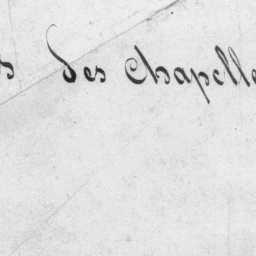 des Chapelle